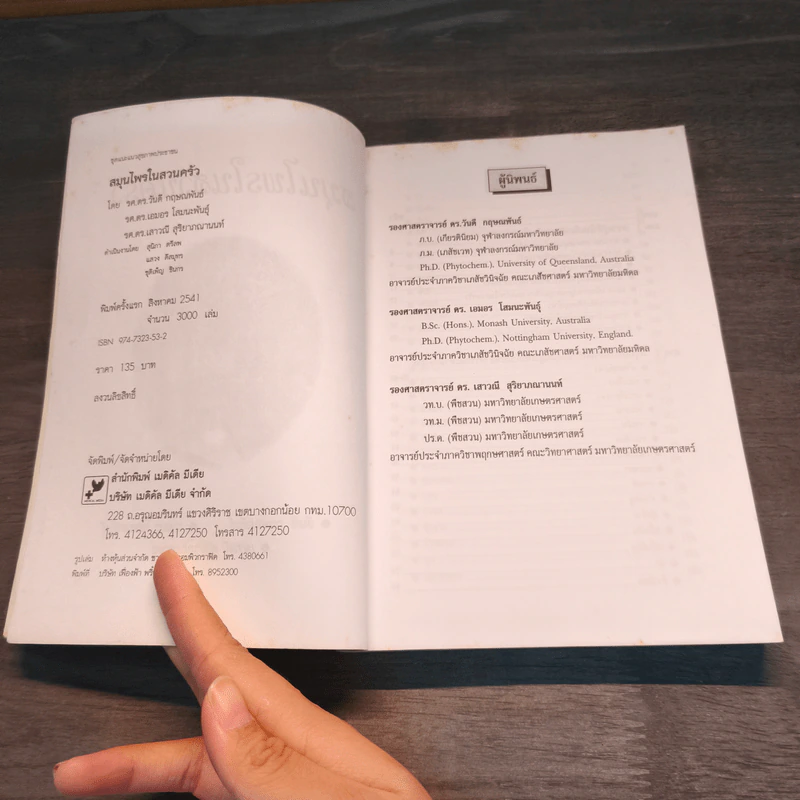 ชุดแนะแนวสุขภาพประชาชน
สมุนไพรในสวนครัว
โดย รศ.ดร.วันดี กฤษณพันธ์
รศ.ดร.เอมอร โสมนะพันธุ์
รศ.ดร.เสาวณี สุริยาภณานนท์
ดำเนินงานโดย สุนิภา
พิมพ์ครั้งแรก สิงหาคม 2541
จำนวน 3000 เล่ม
ISBN 974-7323-53-2
ราคา 135 บาท
สงวนลิขสิทธิ์
จัดพิมพ์/จัดจำหน่ายโดย
สำนักพิมพ์ เมดิคัล มีเดีย
บริษัท เมดิคัล มีเดีย จำกัด
228 ถ.อรุณอมรินทร์ แขวงศิริราช เขตบางกอกน้อย กทม.10700
โทร. 4124366, 4127250 โทรสาร 4127250
รูปเล่ม ห้างหุ้นส่วนจำกัด โทร. 4380661
พิมพ์ที่ บริษัท เฟื่องฟ้า โทร. 8952300
ผู้นิพนธ์
รองศาสตราจารย์ ดร.วันดี กฤษณพันธ์
ภ.บ. (เกียรตินิยม) จุฬาลงกรณ์มหาวิทยาลัย
ภ.ม. (เภสัชเวท) จุฬาลงกรณ์มหาวิทยาลัย
Ph.D. (Phytochem.), University of Queensland, Australia
อาจารย์ประจำภาควิชาเภสัชวินิจฉัย คณะเภสัชศาสตร์ มหาวิทยาลัยมหิดล
รองศาสตราจารย์ ดร. เอมอร โสมนะพันธุ์
B.Sc. (Hons.), Monash University, Australia
Ph.D. (Phytochem.), Nottingham University, England.
อาจารย์ประจำภาควิชาเภสัชวินิจฉัย คณะเภสัชศาสตร์ มหาวิทยาลัยมหิดล
รองศาสตราจารย์ ดร. เสาวณี สุริยาภณานนท์
วท.บ. (พืชสวน) มหาวิทยาลัยเกษตรศาสตร์
วท.ม. (พืชสวน) มหาวิทยาลัยเกษตรศาสตร์
ปร.ด. (พืชสวน) มหาวิทยาลัยเกษตรศาสตร์
อาจารย์ประจำภาควิชาพฤกษศาสตร์ คณะวิทยาศาสตร์ มหาวิทยาลัยเกษตรศาสตร์